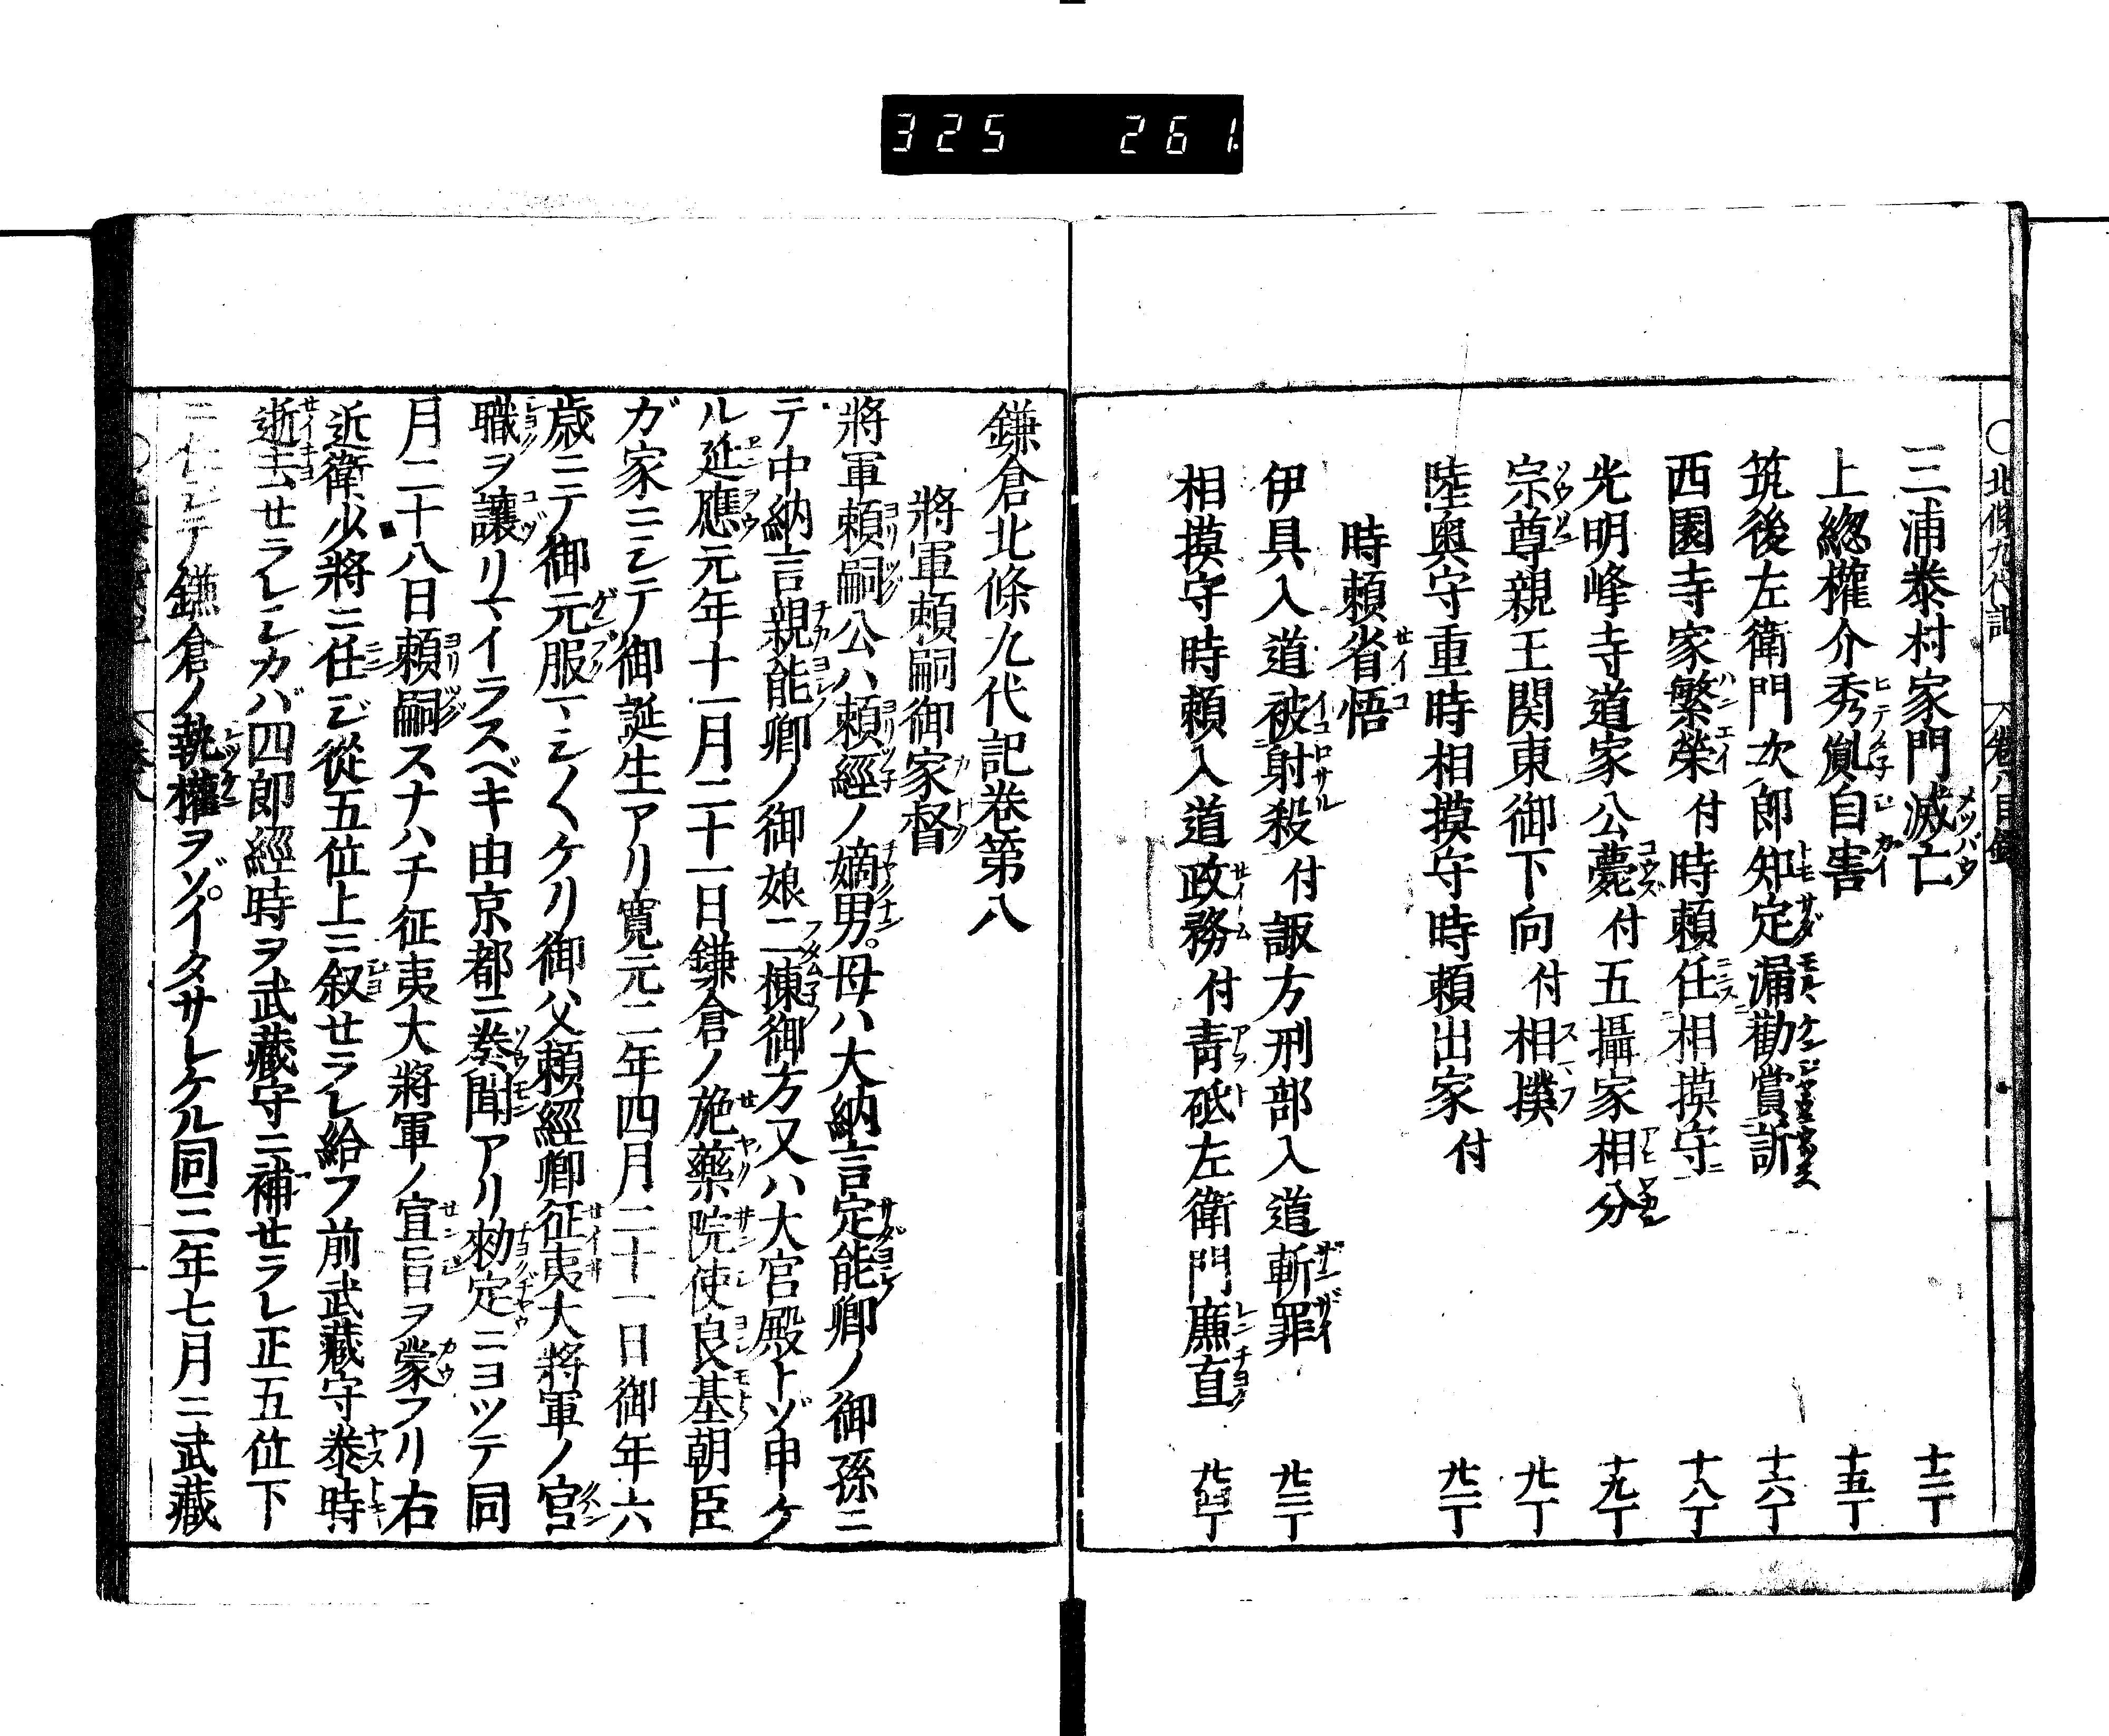 325 261
三浦泰村家門滅亡 十二丁
上總權介秀胤自害 十五丁
筑後左衛門次郎知定漏勸賞訴 十六丁
西園寺家繁榮付時頼任相摸守 十八丁
光明峰寺道家公薨付五攝家相分 十九丁
宗尊親王関東御下向付相撲 廿丁
陸奥守重時相摸守時頼出家付 廿二丁
時頼省悟
伊具入道被射殺付諏方刑部入道斬罪 廿三丁
相摸守時頼入道政務付青砥左衛門廉直
鎌倉北條九代記巻第八
將軍頼嗣御家督
將軍頼嗣公ハ頼經ノ嫡男。母ハ大納言定能卿ノ御孫ニ
テ中納言親能卿ノ御娘二棟御方又ハ大官殿トゾ申ケ
ル延應元年十一月二十一日鎌倉ノ施藥院使良基朝臣
ガ家ニシテ御誕生アリ寛元二年四月二十一日御年六
歳ニテ御元服マシ〱ケリ御父頼經卿征夷大將軍ノ官
職ヲ讓リマイラスベキ由京都ニ奏聞アリ勅定ニヨツテ同
月二十八日頼嗣スナハチ征夷大將軍ノ宣旨ヲ蒙フリ右
近衛少將ニ任ジ從五位上ニ叙セラレ給フ前武藏守泰時
逝去セラレシカバ四郎經時ヲ武藏守ニ補セラレ正五位下
ニ任シテ鎌倉ノ執權ヲゾイタサレケル同三年七月ニ武藏